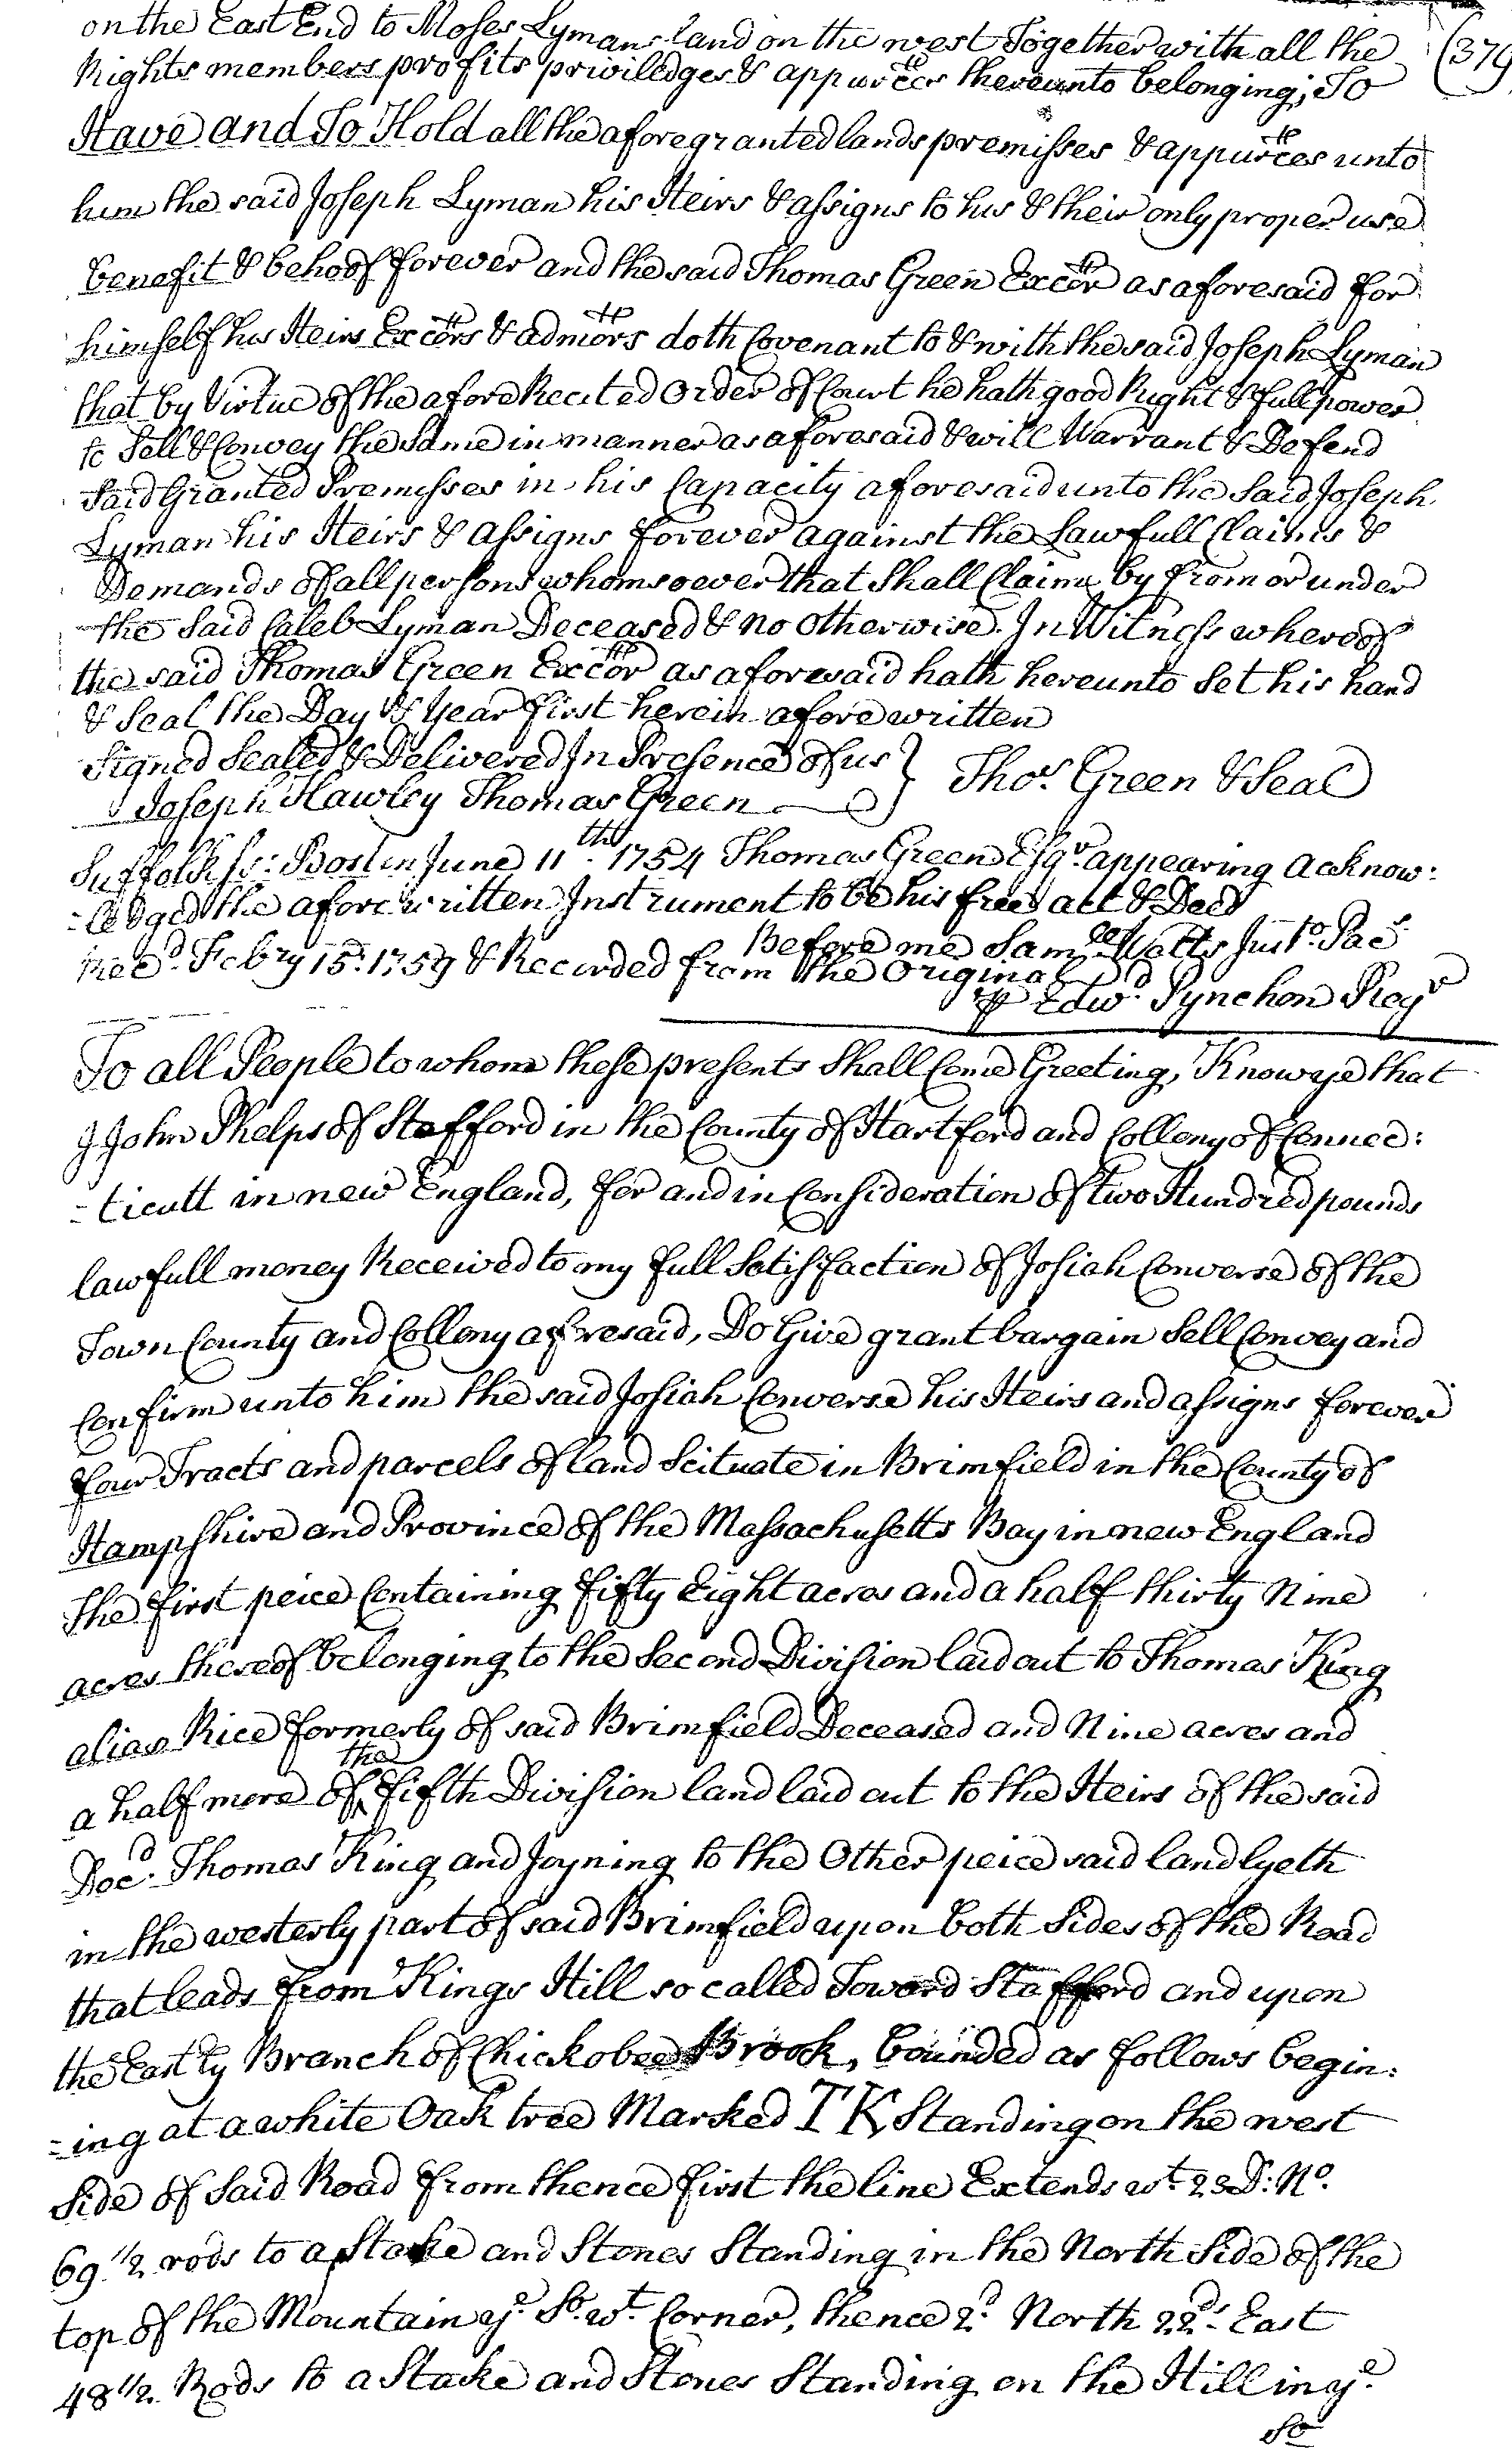 on the East End to Moses Lymans land on the west Together with all the (379
Rights members profits priviledges & appurces thereunto belonging; To
Have and To Hold all the aforegranted lands premisses & appurces unto
him the said Joseph Lyman his Heirs & assigns to his & their only proper use
benefit & behoof forever and the said Thomas Green Excor as aforesaid for
himself his Heirs Excors & admors doth Covenant to & with the said Joseph Lyman
that by Virtue of the afore Recited Order of Court he hath good Right & full power
to Sell & Convey the Same in manner as aforesaid & will Warrant & Defend
Said Granted Premisses in his Capacity aforesaid unto the Said Joseph
Lyman his Heirs & assigns forever against the Lawfull Claims &
Demands of all persons whomsoever that Shall Claime by from or under
the Said Caleb Lyman Deceased & no Otherwise. In Witness whereof
the said Thomas Green Excor as aforesaid hath hereunto Set his hand
& Seal the Day & Year first herein afore written
Signed Sealed & Delivered In Presence of us } Thos. Green & Seal
Joseph Hawley Thomas Green
Suffolk ss: Boston June 11th. 1754 Thomas Green Esqr. appearing acknow:
=ledged the afore written Instrument to be his free act & Deed
Before me Samll Watts Justo. Pacs.
Recd. Febry 15: 1759 & Recorded from the Original
⅌ Edwd. Pynchon Regr
To all People to whom these presents Shall Come Greeting, Know ye that
I John Phelps of Stafford in the County of Hartford and Collony of Connec:
=ticutt in new England, for and in Consideration of two Hundred pounds
lawfull money Received to my full Satisfaction of Josiah Converse of the
Town County and Collony aforesaid, Do Give grant bargain Sell Convey and
Confirm unto him the said Josiah Converse his Heirs and assigns forever
four Tracts and parcels of land Scituate in Brimfield in the County of
Hampshire and Province of the Massachusetts Bay in new England
The first peice Containing fifty Eight acres and a half thirty Nine
acres thereof belonging to the Second Division laid out to Thomas King
alias Rice formerly of said Brimfield Deceased and Nine acres and
a half more of the fifth Division land laid out to the Heirs of the said
Decd. Thomas King and Joyning to the Other peice said land lyeth
in the westerly part of said Brimfield upon both Sides of the Road
that leads from Kings Hill so called Toward Stafford and upon
the Eastly Branch of Chickobee Brook, bounded as follows begin:
=ing at a white Oak tree Marked TK Standing on the west
Side of Said Road from thence first the line Extends wt. 23 D: No.
69 1/2 rods to a Stake and Stones Standing in the North Side of the
top of the Mountain ye. So. wt. Corner, thence 2d. North 22d. East
48 1/2 Rods to a Stake and Stones Standing on the Hill in ye.
So